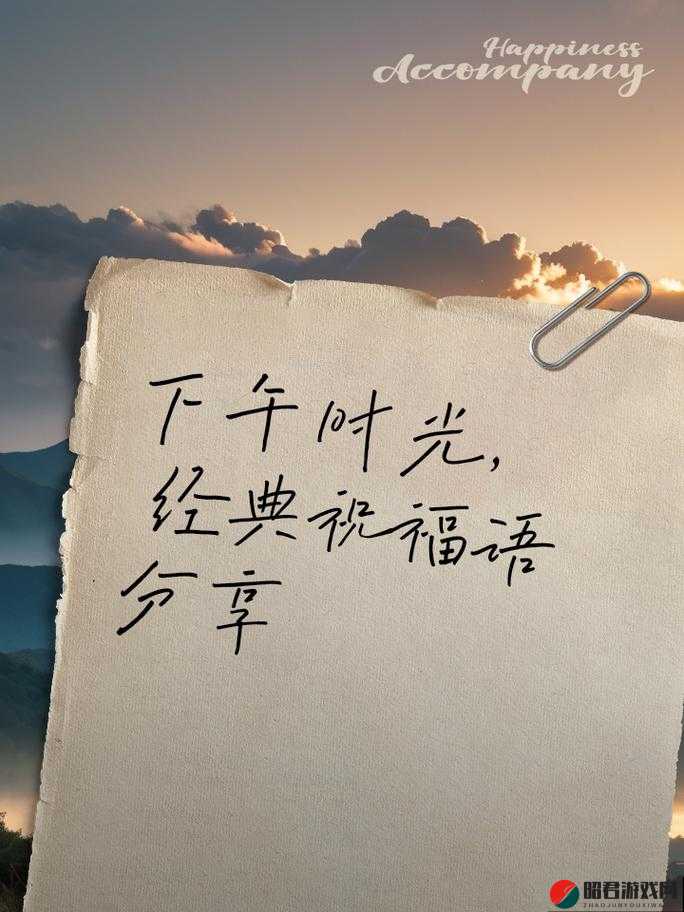 Happiness
Accompany
下午时光,
经典祝福语
分享
昭君游戏网
ZHAOJUNYOUXIWANG